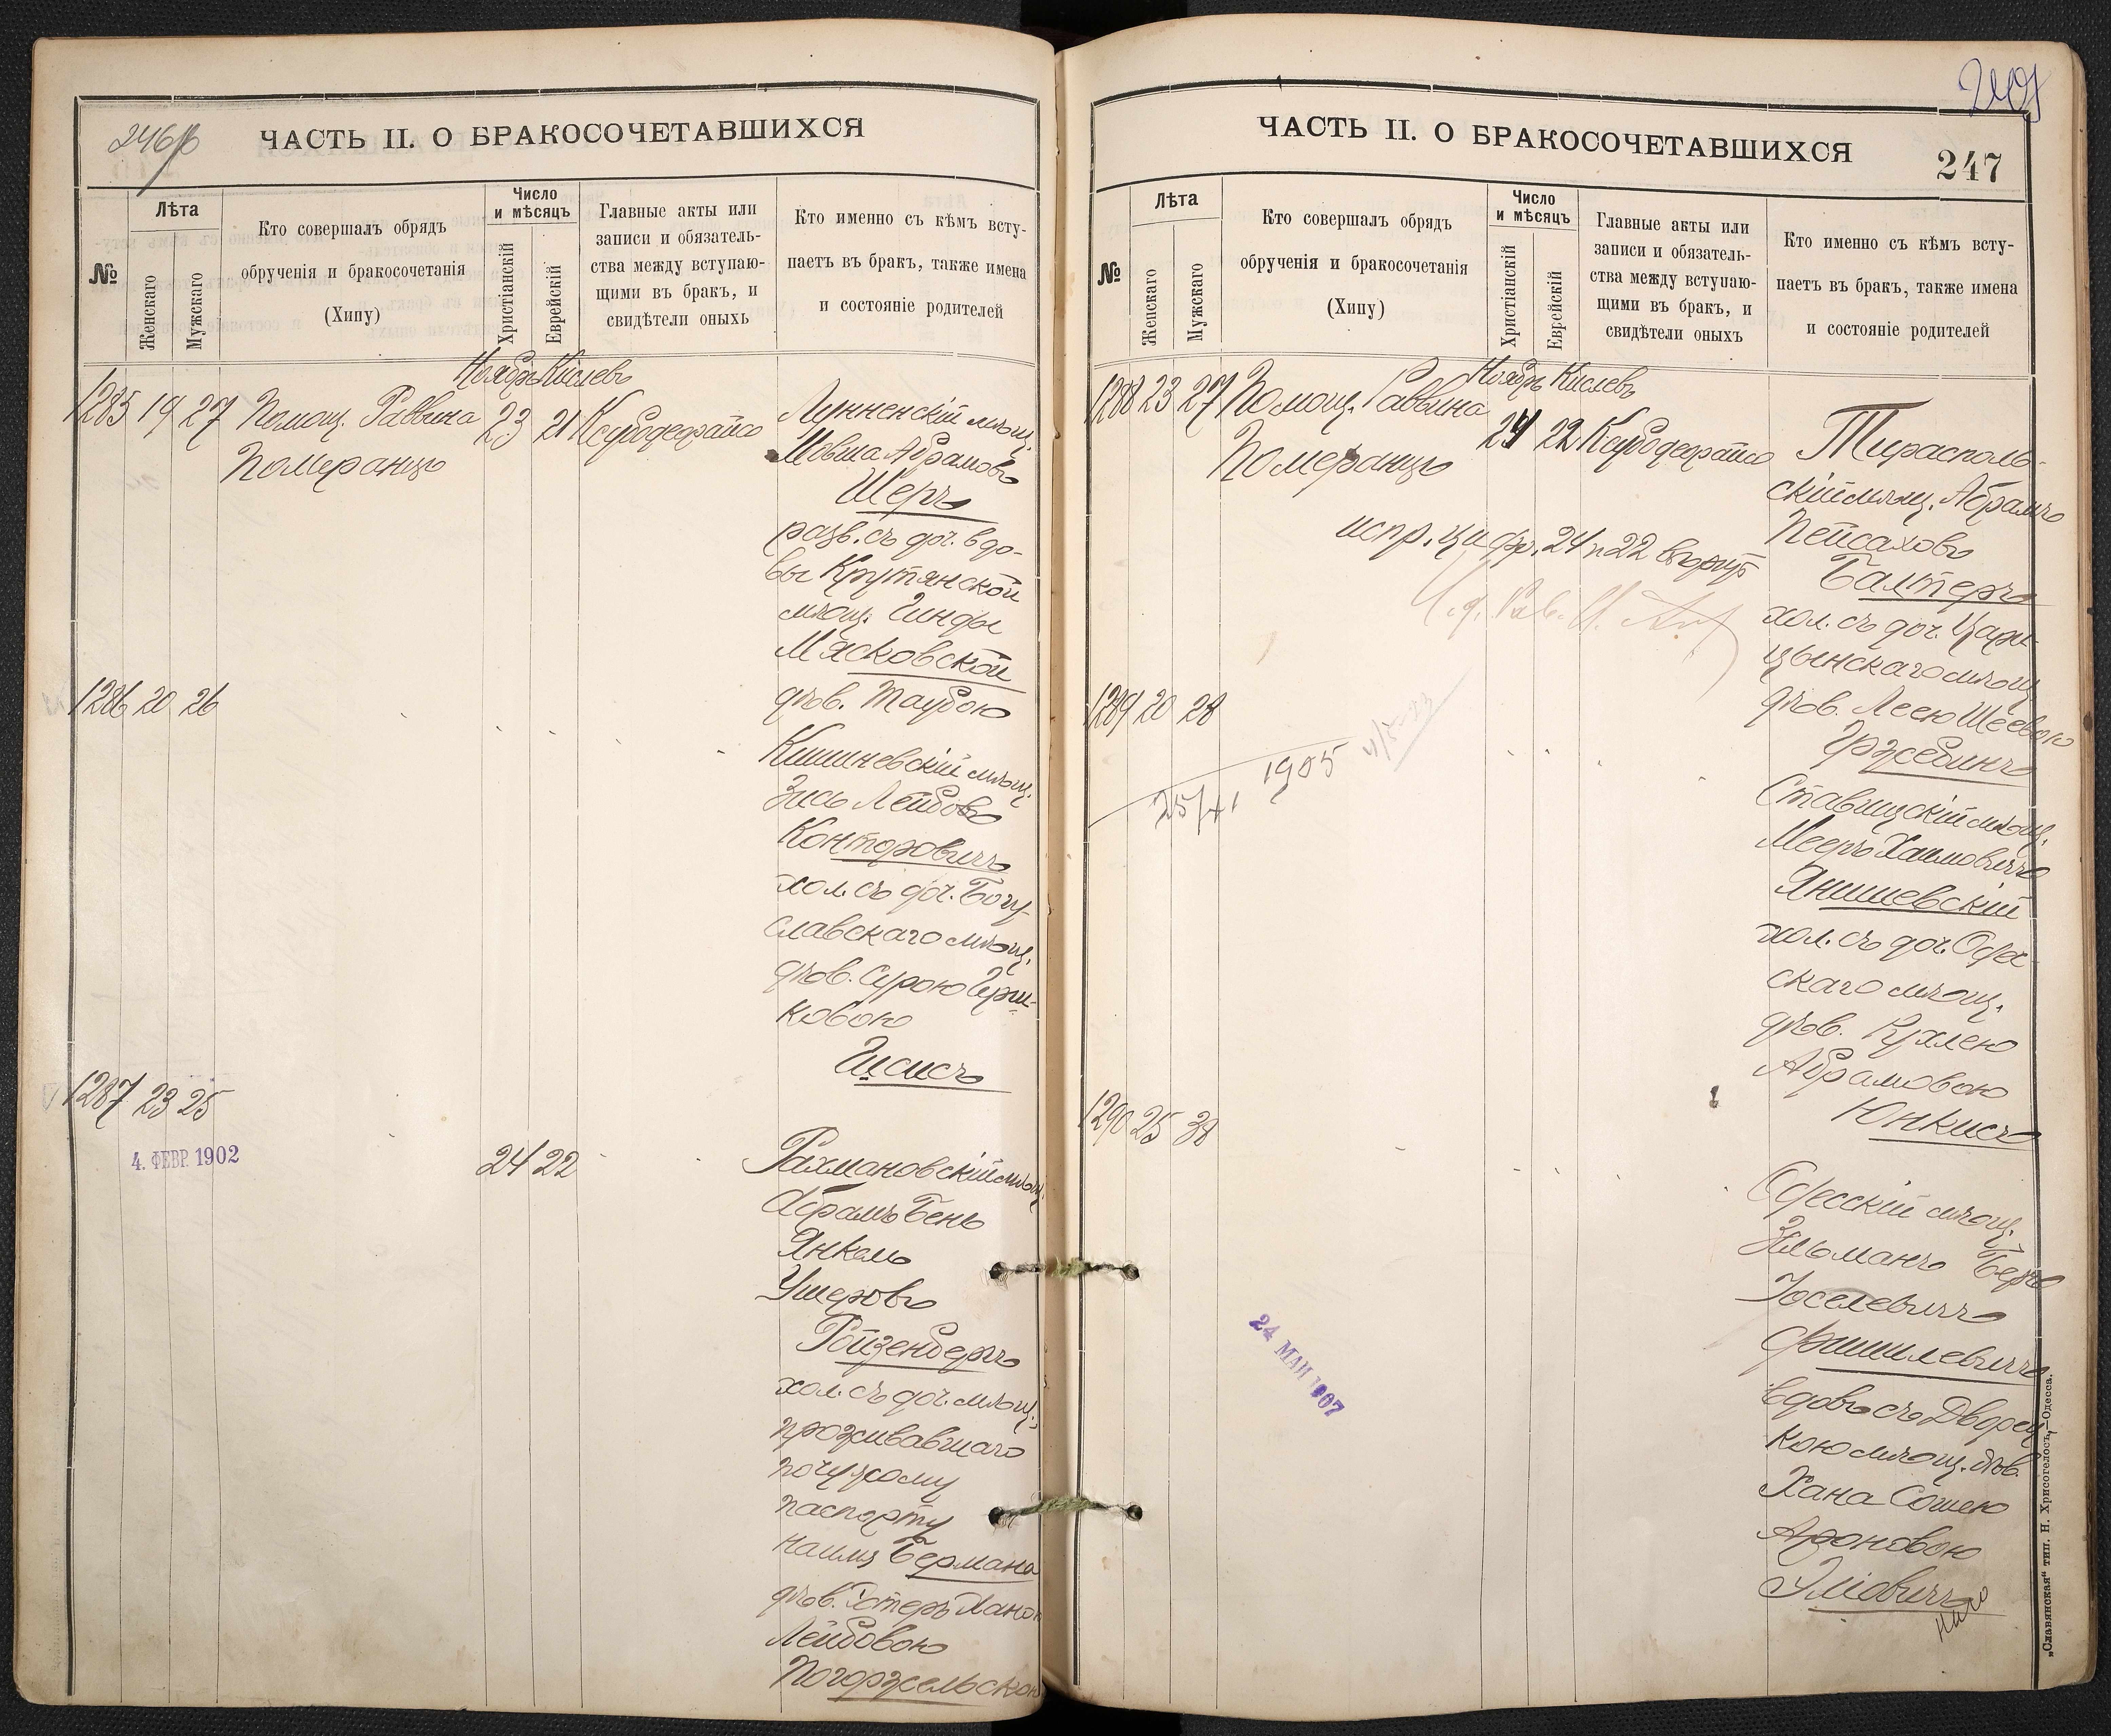 246 об
ЧАСТЬ II. О БРАКОСОЧЕТАВШИХСЯ
№
Лѣта
Женскаго
Мужскаго
Кто совершалъ обрядъ
обрученія и бракосочетанія
(Хипу)
Число
и мѣсяцъ
Христіанскій
Еврейскій
Главные акты или
записи и обязатель-
ства между вступаю-
щими въ бракъ, и
свидѣтели оныхъ
Кто именно съ кѣмъ всту-
паетъ въ бракъ, также имена
и состояніе родителей
Ноябрь Кислевъ
1285 19 27 Помощ. Раввина 23 21 Ксубодеорайсо
Померанцъ
Лунненскій мѣщ.
Мовша Абрамовъ
Шеръ
разв. съ доч. вдо-
вы Крутянской
мѣщ. Гинды
Мясковской
дѣв. Таубою
1286 20 26
Кишиневскій мѣщ.
Зись Лейбовъ
Конторовичъ
хол. съ доч. Богу-
славскаго мѣщ.
дѣв. Сурою Герш-
ковою
Гисисъ
1287 23 25
4. ФЕВР. 1902
24 22
Рахмановскій мѣщ.
Абрамъ Бенъ
Янкель
Ушеровъ
Ройзенбергъ
хол. съ доч. мѣщ.,
проживавшаго
по чужому
паспорту
на имя Бермана
дѣв. Эстеръ Ханою
Лейбовою
Погоржельскою
ЧАСТЬ II. О БРАКОСОЧЕТАВШИХСЯ
247
№
Лѣта
Женскаго
Мужскаго
Кто совершалъ обрядъ
обрученія и бракосочетанія
(Хипу)
Число
и мѣсяцъ
Христіанскій
Еврейскій
Главные акты или
записи и обязатель-
ства между вступаю-
щими въ бракъ, и
свидѣтели оныхъ
Кто именно съ кѣмъ всту-
паетъ въ бракъ, также имена
и состояніе родителей
Ноябрь Кислевъ
1288 23 27 Помощ. Раввина 24 22 Ксубодеорайсо
Померанцъ
испр. цифр. 24 и 22 вѣрить
Тирасполь-
скій мѣщ. Абрамъ
Пейсаховъ
Балтеръ
хол. съ доч. Цари-
цынскаго мѣщ.
дѣв. Леею Шеевою
Гржебинъ
1289 20 28
1905
25/XI
Ставищскій мѣщ.
Мееръ Хаимовичъ
Янишевскій
хол. съ доч. Одес-
скаго мѣщ.
дѣв. Рухлею
Абрамовою
Юнкисъ
1290 25 38
24 МАИ 1907
Одесскій мѣщ.
Зельманъ Беръ
Іоселевичъ
Фишилевичъ
вдовъ съ Дворец-
кою мѣщ. дѣв.
Хана Сошею
Ароновою
Эліовичъ
„Славянская“ тип. Н. Хрисогелосъ,—Одесса.